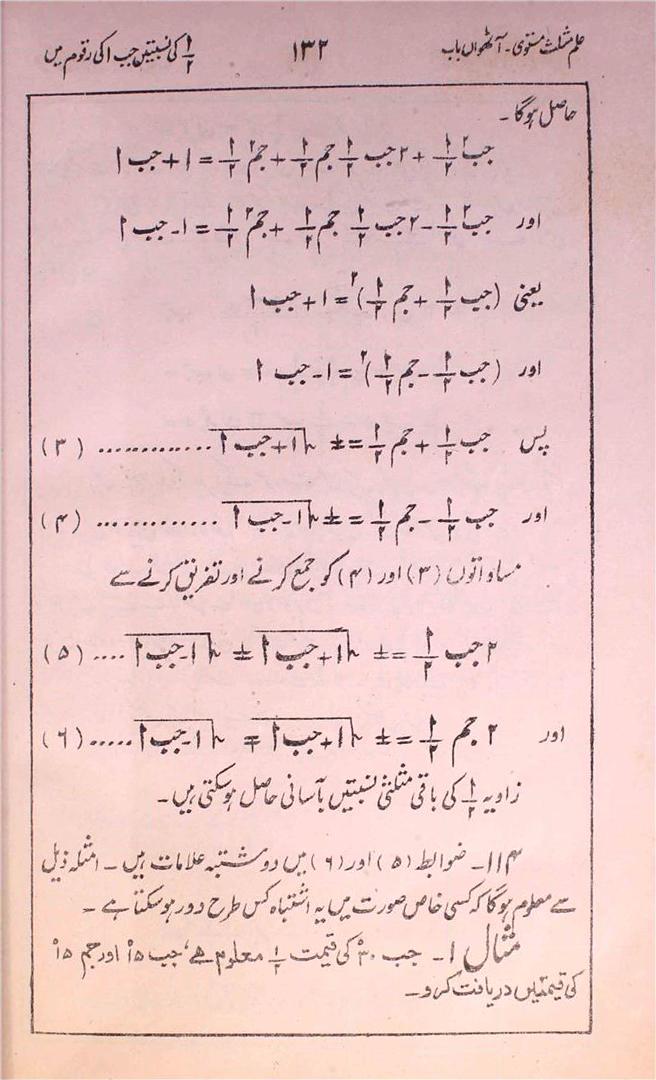 علم مثلث مستوی۔ آٹھواں باب ۱۳۲ ا/۲ کی نسبتیں جب ا کی رقوم میں
حاصل ہوگا۔
جب۲ ا/۲ + ۲ جب ا/۲ جم ا/۲ + جم۲ ا/۲ = ۱ + جب ا
اور جب۲ ا/۲ - ۲ جب ا/۲ جم ا/۲ + جم۲ ا/۲ = ۱ - جب ا
یعنی (جب ا/۲ + جم ا/۲)۲ = ۱ + جب ا
اور (جب ا/۲ - جم ا/۲)۲ = ۱ - جب ا
پس جب ا/۲ + جم ا/۲ = ± √(۱ + جب ا) ............ (۳)
اور جب ا/۲ - جم ا/۲ = ± √(۱ - جب ا) ............ (۴)
مساواتوں (۳) اور (۴) کو جمع کرنے اور تفریق کرنے سے
۲ جب ا/۲ = ± √(۱ + جب ا) ± √(۱ - جب ا) .... (۵)
اور ۲ جم ا/۲ = ± √(۱ + جب ا) ∓ √(۱ - جب ا) ..... (۶)
زاویہ ا/۲ کی باقی مثلثی نسبتیں بآسانی حاصل ہوسکتی ہیں۔
۱۱۴۔ ضوابط (۵) اور (۶) میں دو مشتبہ علامات ہیں۔ امثلہ ذیل
سے معلوم ہوگا کہ کسی خاص صورت میں یہ اشتباہ کس طرح دور ہوسکتا ہے۔
مثال ۱۔ جب ۳۰° کی قیمت ۱/۲ معلوم ہے، جب ۱۵° اور جم ۱۵°
کی قیمتیں دریافت کرو۔